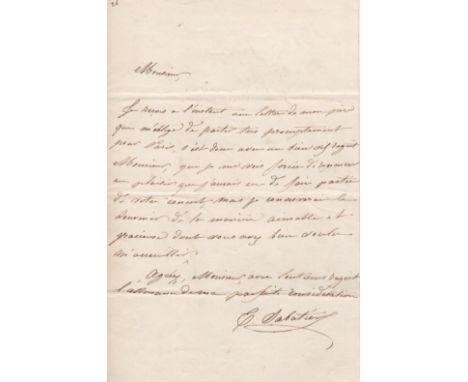 Monsieur,
Je reçois à l'instant une lettre de mon père
qui m'oblige de partir très promptement
pour Paris, c'est donc avec un bien vif regret
Monsieur, que je me vois forcée de renoncer
au plaisir que j'aurais eu de faire partie
de votre concert, mais je conserverai le
souvenir de la manière aimable et
gracieuse dont vous avez bien voulu
m'accueillir.
Agréez, Monsieur, avec tout mon regret
l'assurance de ma parfaite considération
E. Sabatier